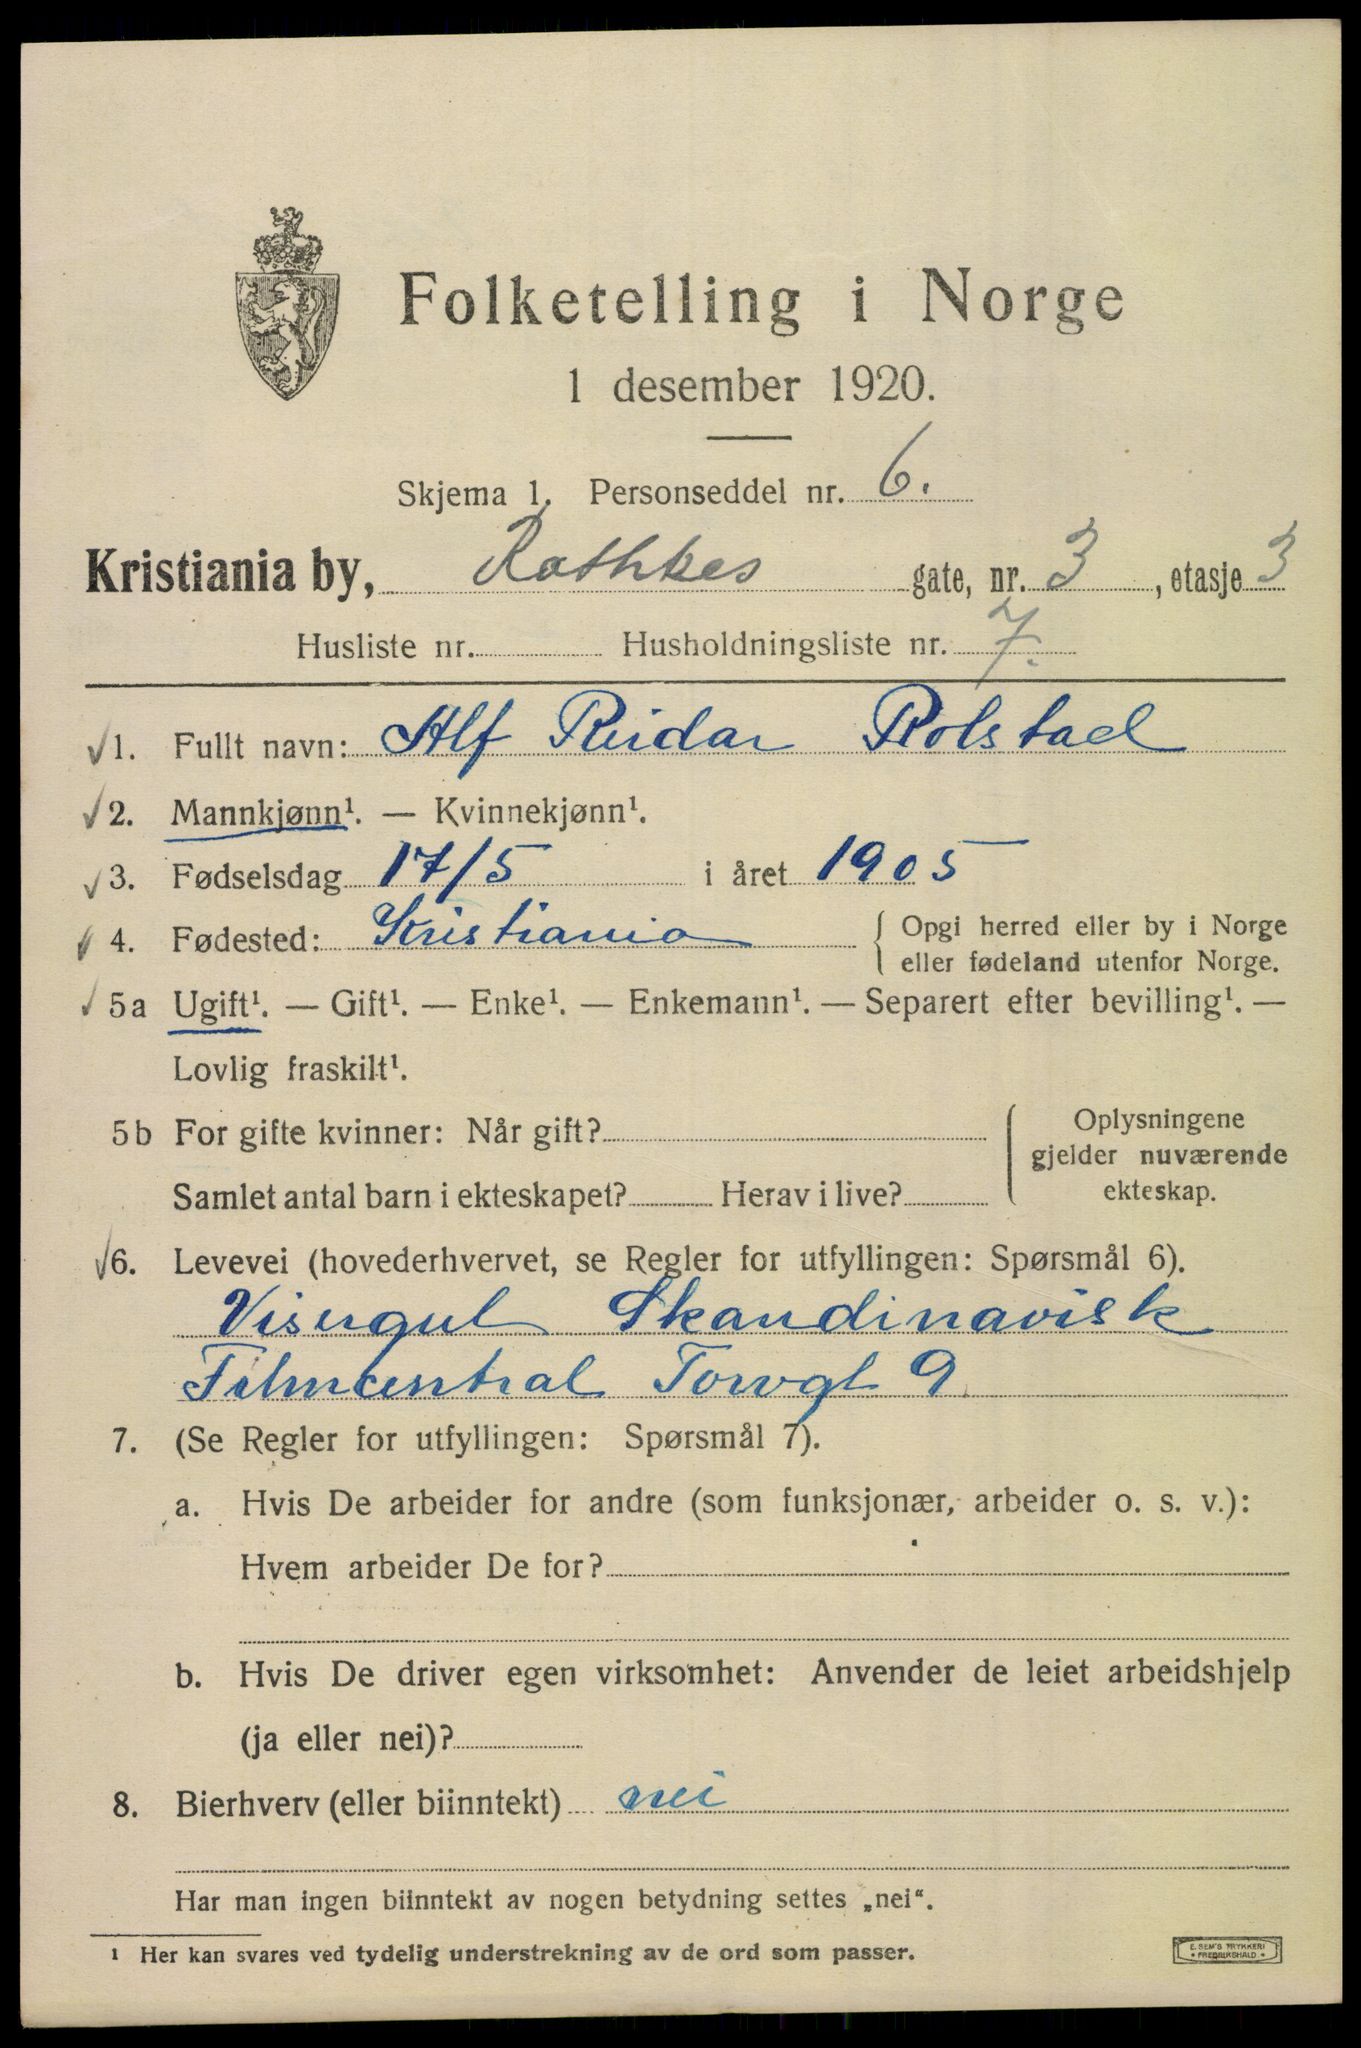 Folketelling i Norge
1 desember 1920.
Skjema 1. Personseddel nr. 6.
Kristiania by, Rathkes gate, nr. 3, etasje 3
Husliste nr. Husholdningsliste nr. 7.
1. Fullt navn: Alf Reidar Rolstad
2. Mannkjønn¹. — Kvinnekjønn¹.
3. Fødselsdag 17/5 i året 1905
4. Fødested: Kristiania { Opgi herred eller by i Norge
eller fødeland utenfor Norge.
5a Ugift¹. — Gift¹. — Enke¹. — Enkemann¹. — Separert efter bevilling¹. —
Lovlig fraskilt¹.
5b For gifte kvinner: Når gift?
Samlet antal barn i ekteskapet? Herav i live?
Oplysningene
gjelder nuværende
ekteskap.
6. Levevei (hovederhvervet, se Regler for utfyllingen: Spørsmål 6).
Visergut Skandinavisk
Filmcentral Torvgt 9
7. (Se Regler for utfyllingen: Spørsmål 7).
a. Hvis De arbeider for andre (som funksjonær, arbeider o. s. v.):
Hvem arbeider De for?
b. Hvis De driver egen virksomhet: Anvender de leiet arbeidshjelp
(ja eller nei)?
8. Bierhverv (eller biinntekt) nei
Har man ingen biinntekt av nogen betydning settes „nei“.
¹ Her kan svares ved tydelig understrekning av de ord som passer.
E. SEM'S TRYKKERI
• FREDRIKSHALD •